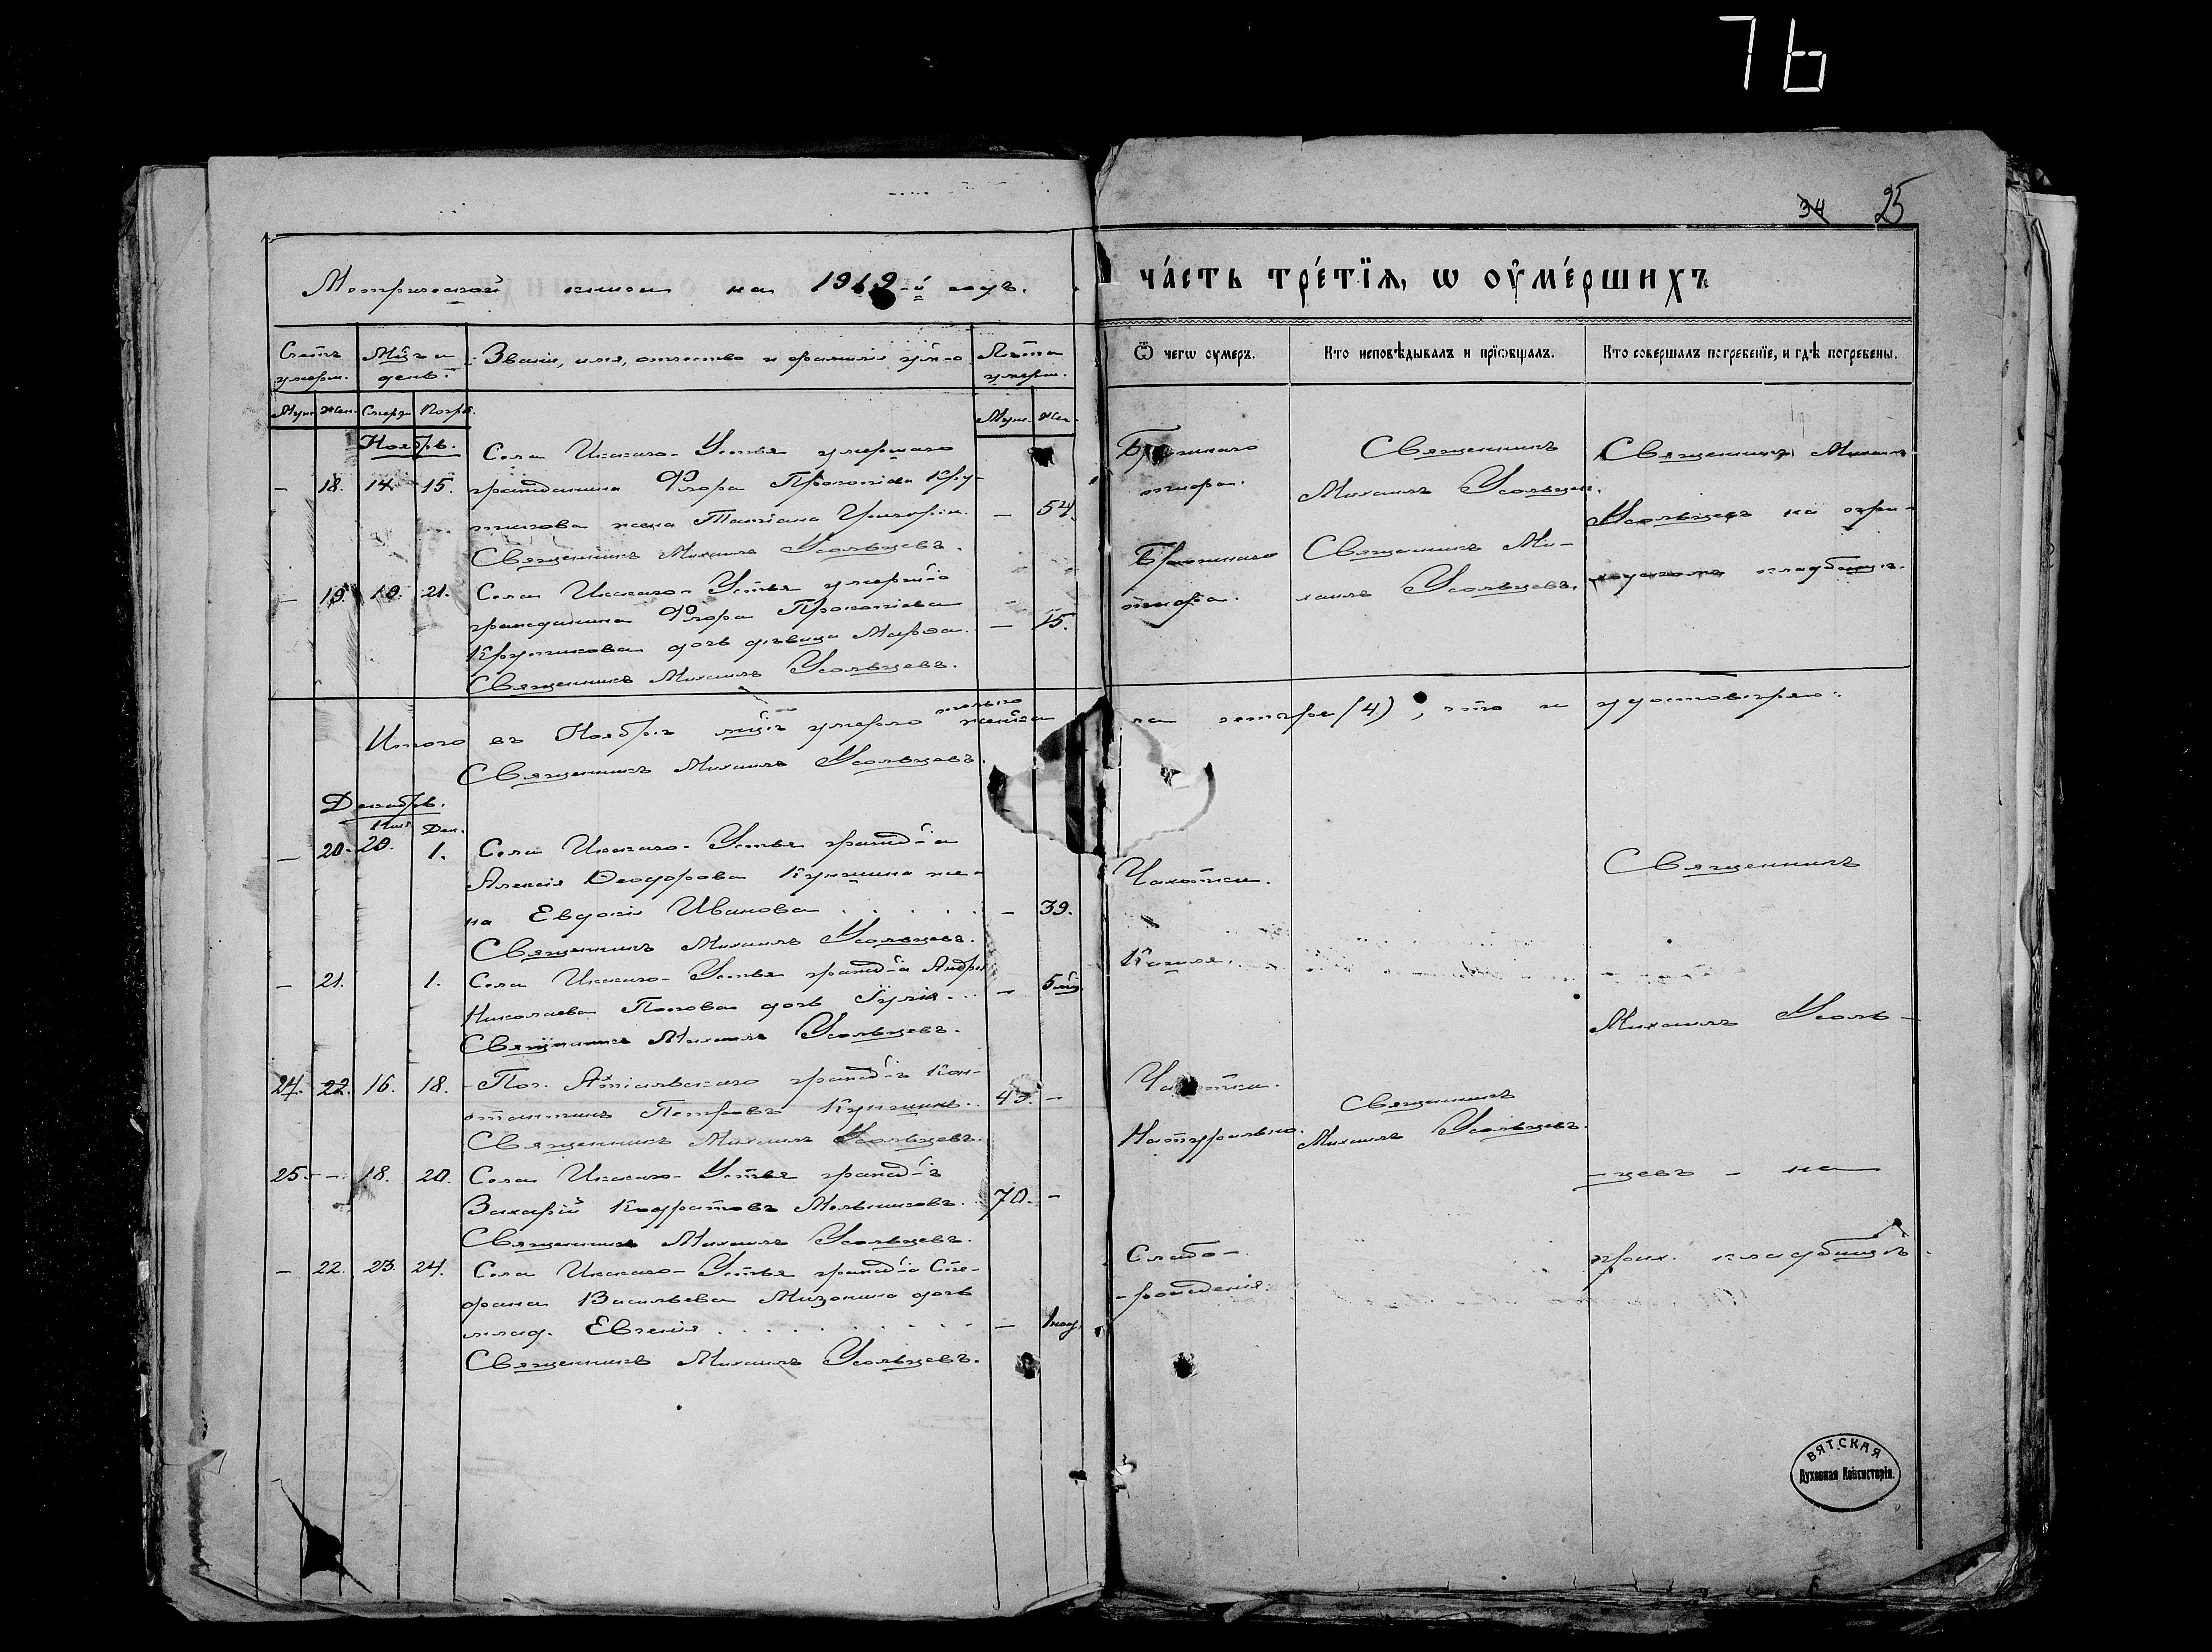 76
34 25
Метрической книги на 1919-й годъ.
ча́сть тре́тїѧ, ѡ оу҆ме́ршихъ
Счетъ умерш.
Мѣс. и день.
Званіе, имя, отчество и фамилія умер-о
Лѣта умерш.
Ѿ чегѡ оумеръ.
Кто исповѣдывалъ и прїѡбщалъ.
Кто совершалъ погребенїе, и гдѣ погребены.
Муж. Жен. Смерти Погр.
Муж. Жен.
Ноябрь.
Села Укскаго-Устья умершаго
- 18. 14. 15. гражданина Флора Прокопіева Кру-
тикова жена Татіана Григор. - 54.
Священникъ Михаилъ Усольцевъ.
Брюшнаго
тифа.
Священникъ
Михаилъ Усольцев.
Священникъ Михаилъ
Усольцевъ на при-
ходскомъ кладбищѣ.
- 19. 19. 21. Села Укскаго-Устья умерш-о
гражданина Флора Прокопіева
Крутикова дочь дѣвица Марѳа. - 15.
Священникъ Михаилъ Усольцевъ.
Брюшнаго
тифа.
Священникъ Ми-
хаилъ Усольцевъ.
Итого въ Ноябрѣ мцѣ умерло только женска
го четыре (4), что и удостовѣряю:
Священникъ Михаилъ Усольцевъ.
Декабрь.
Ноя. Дек.
- 20. 29. 1. Села Укскаго-Устья гражд-а
Алексія Ѳеодорова Кунгина же-
на Евдокія Иванова . . . . . - 39.
Священникъ Михаилъ Усольцевъ.
Чахотки.
Священникъ
- 21. 1. Села Укскаго-Устья гражд-а Андрея
Николаева Попова дочь Іулія - 5 мѣс.
Священникъ Михаилъ Усольцевъ.
Кашля.
Михаилъ Усоль-
24. 22. 16. 18. Поч. гражд-ъ Кон-
стантинъ Петровъ Кунгинъ. 43. -
Священникъ Михаилъ Усольцевъ.
Чахотки.
Священникъ
Михаилъ Усольцевъ.
25. - 18. 20. Села Укскаго-Устья гражд-ъ
Захарій Кодратовъ Мельниковъ. 70. -
Священникъ Михаилъ Усольцевъ.
Натурально.
-цевъ - на
- 22. 23. 24. Села Укскаго-Устья гражд-а Сте-
фана Васильева Мизонина дочь
млад. Евгенія . . . . . . . - 1 нед.
Священникъ Михаилъ Усольцевъ.
Слабо-
-рожденія.
прих. кладбищѣ.
ВЯТСКАЯ
Духовная Консисторія.